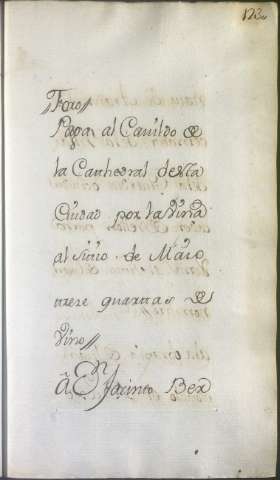 123
"Foro"
Paga al Cavildo de
la Cathedral desta
Ciudad por la Viña
al sitio de
trese quartas de
Vino"
â Jacinto